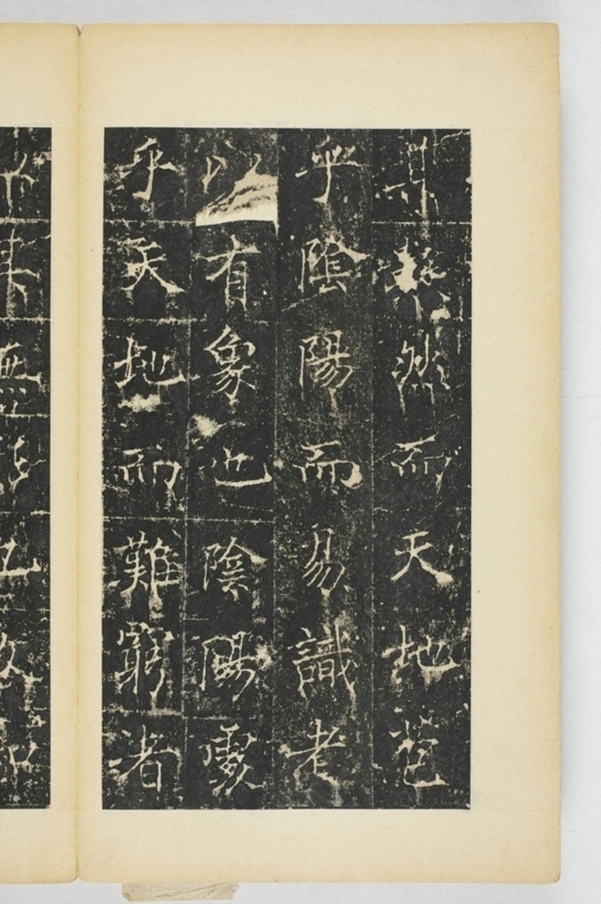 其數然而天地苞
乎陰陽而易識者
以有象也陰陽處
乎天地而難窮者